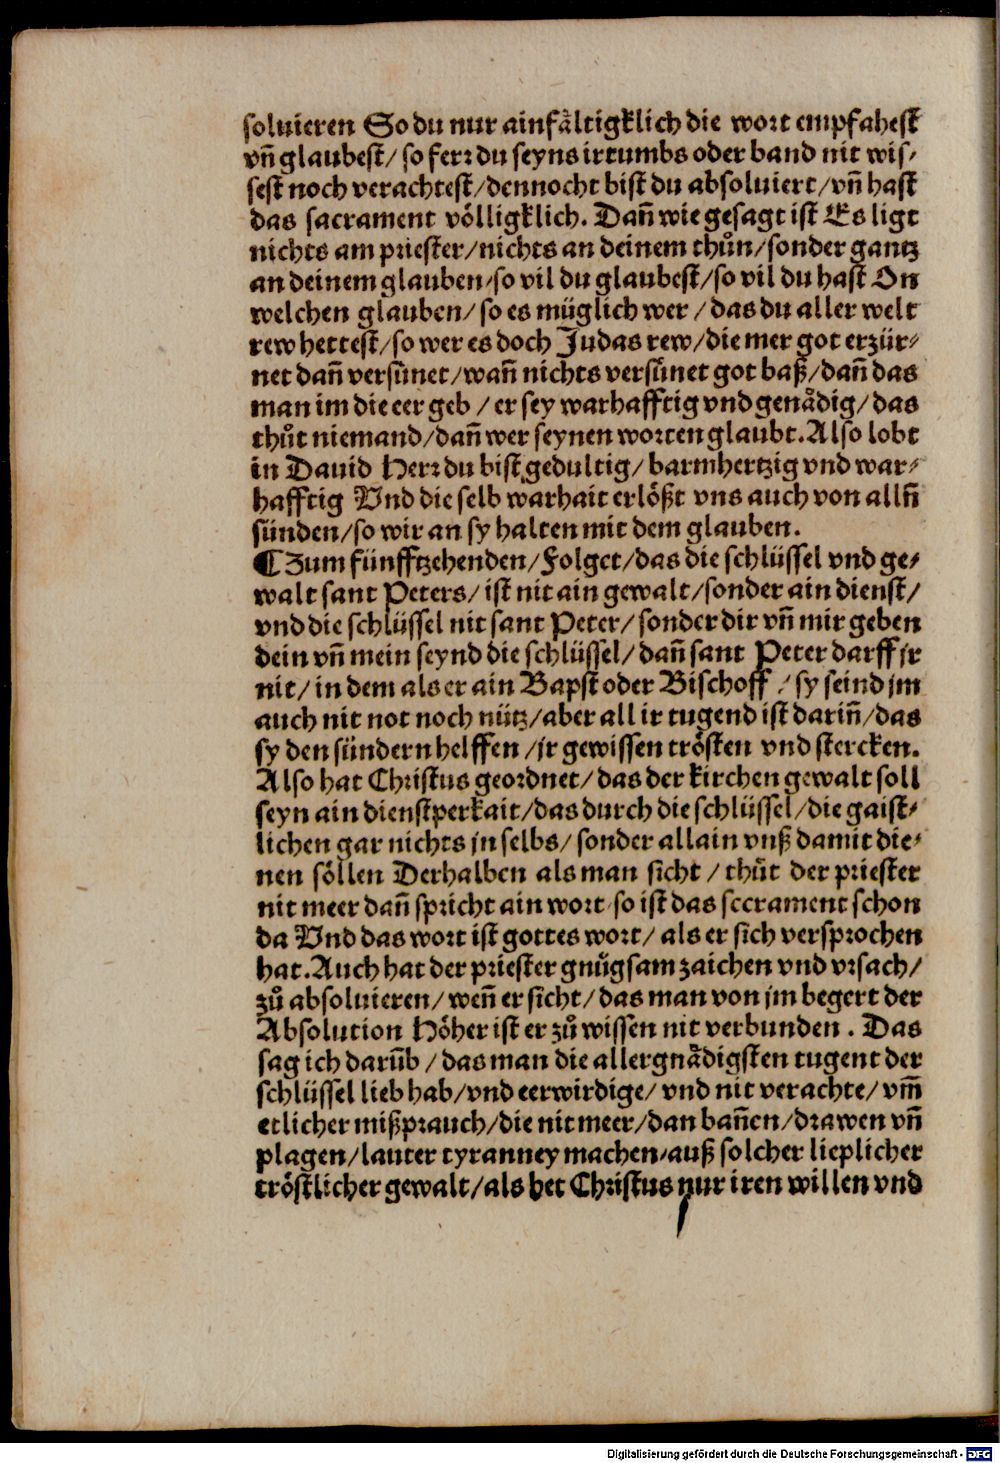 soluieren So du nur ainfåltigklich die wort empfahest
vn̄ glaubest/ so ferr du seyns irtumbs oder band nit wis-
sest noch verachtest/dennocht bist du absoluiert/vn̄ hast
das sacrament völligklich. Dan̄ wie gesagt ist Es ligt
nichts am priester/nichts an deinem thůn/sonder gantz
an deinem glauben/so vil du glaubest/so vil du hast On
welchen glauben/ so es müglich wer/das du aller welt
rew hettest/so wer es doch Judas rew/die mer got erzür-
net dan̄ versünet/wan̄ nichts versünet got baß/dan̄ das
man im die eer geb/ er sey warhafftig vnd genådig/das
thůt niemand/dan̄ wer seynen worten glaubt. Also lobt
in Dauid Herr du bist gedultig/ barmhertzig vnd war-
hafftig Vnd die selb warhait erlößt vns auch von alln̄
sünden/so wir an sy halten mit dem glauben.
¶ Zum fünfftzehenden/Folget/das die schlüssel vnd ge-
walt sant Peters/ist nit ain gewalt/sonder ain dienst/
vnd die schlüssel nit sant Peter/sonder dir vn̄ mir geben
dein vn̄ mein seynd die schlüssel/dan̄ sant Peter darff jr
nit/in dem als er ain Bapst oder Bischoff/sy seind jm
auch nit not noch nütz/aber all ir tugend ist darin̄/das
sy den sündern helffen/jr gewissen trösten vnd stercken.
Also hat Christus geordnet/das der kirchen gewalt soll
seyn ain dienstperkait/das durch die schlüssel/die gaist-
lichen gar nichts jn selbs/sonder allain vnß damit die-
nen söllen Derhalben als man sicht/thůt der priester
nit meer dan̄ spricht ain wort/so ist das secrament schon
da Vnd das wort ist gottes wort/als er sich versprochen
hat. Auch hat der priester gnůgsam zaichen vnd vrsach/
zů absoluieren/wen̄ er sicht/das man von jm begert der
Absolution Höher ist er zů wissen nit verbunden. Das
sag ich darūb/das man die allergnådigsten tugent der
schlüssel lieb hab/vnd eerwirdige/vnd nit verachte/vm̄
etlicher mißprauch/die nit meer/dan ban̄en/drawen vn̄
plagen/lauter tyranney machen/auß solcher lieplicher
tröstlicher gewalt/als het Christus nur iren willen vnd
Digitalisierung gefördert durch die Deutsche Forschungsgemeinschaft - DFG